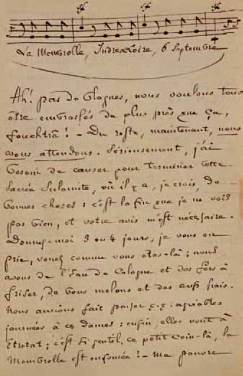 La Membrolle, Indre & Loire, 6 Septembre
Ah! pas de blagues, nous voulons tous
être embrassés de plus près que ça,
fouchtra! – Du reste, maintenant, nous
vous attendons. Sérieusement, j'ai
besoin de causer pour terminer cette
sacrée Sulamite, où il y a, je crois, de
bonnes choses: c'est la fin que je ne vois
pas bien, et votre avis m'est nécessaire.
Donnez-moi 3 ou 4 jours, je vous en
prie, venez comme vous êtes là; nous
avons de l'Eau de Cologne et des fers à
friser, de bons melons et des œufs frais.
Nous aurions fait passer q.q. agréables
journées à ces dames: enfin, elles vont à
Etretat; c'est si gentil, ce petit coin-là, la
Membrolle est enfoncée! – Ma pauvre